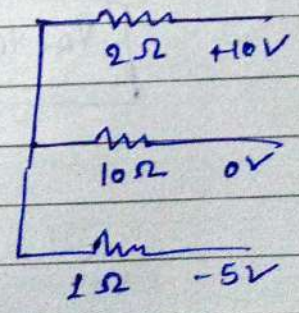 2Ω +10V
10Ω 0V
1Ω -5V